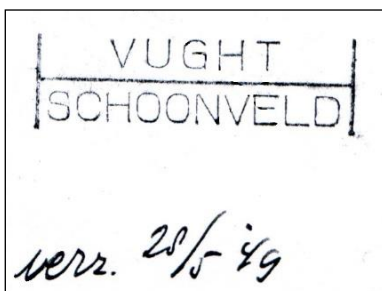 VUGHT
SCHOONVELD
verz. 28/5 '49